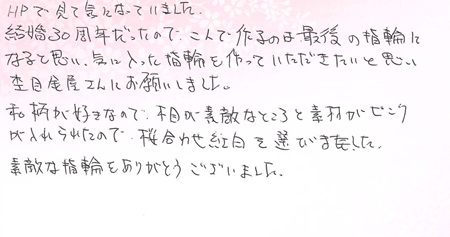 HPで見て気になっていました。
結婚30周年だったので、ここで作るのは最後の指輪に
なると思い、気に入った指輪を作っていただきたいと思い
杢目金屋さんにお願いしました。
和柄が好きなので、木目の素敵なところと素材がピンク
が入れられたので、桜合わせ紅白を選びました。
素敵な指輪をありがとうございました。